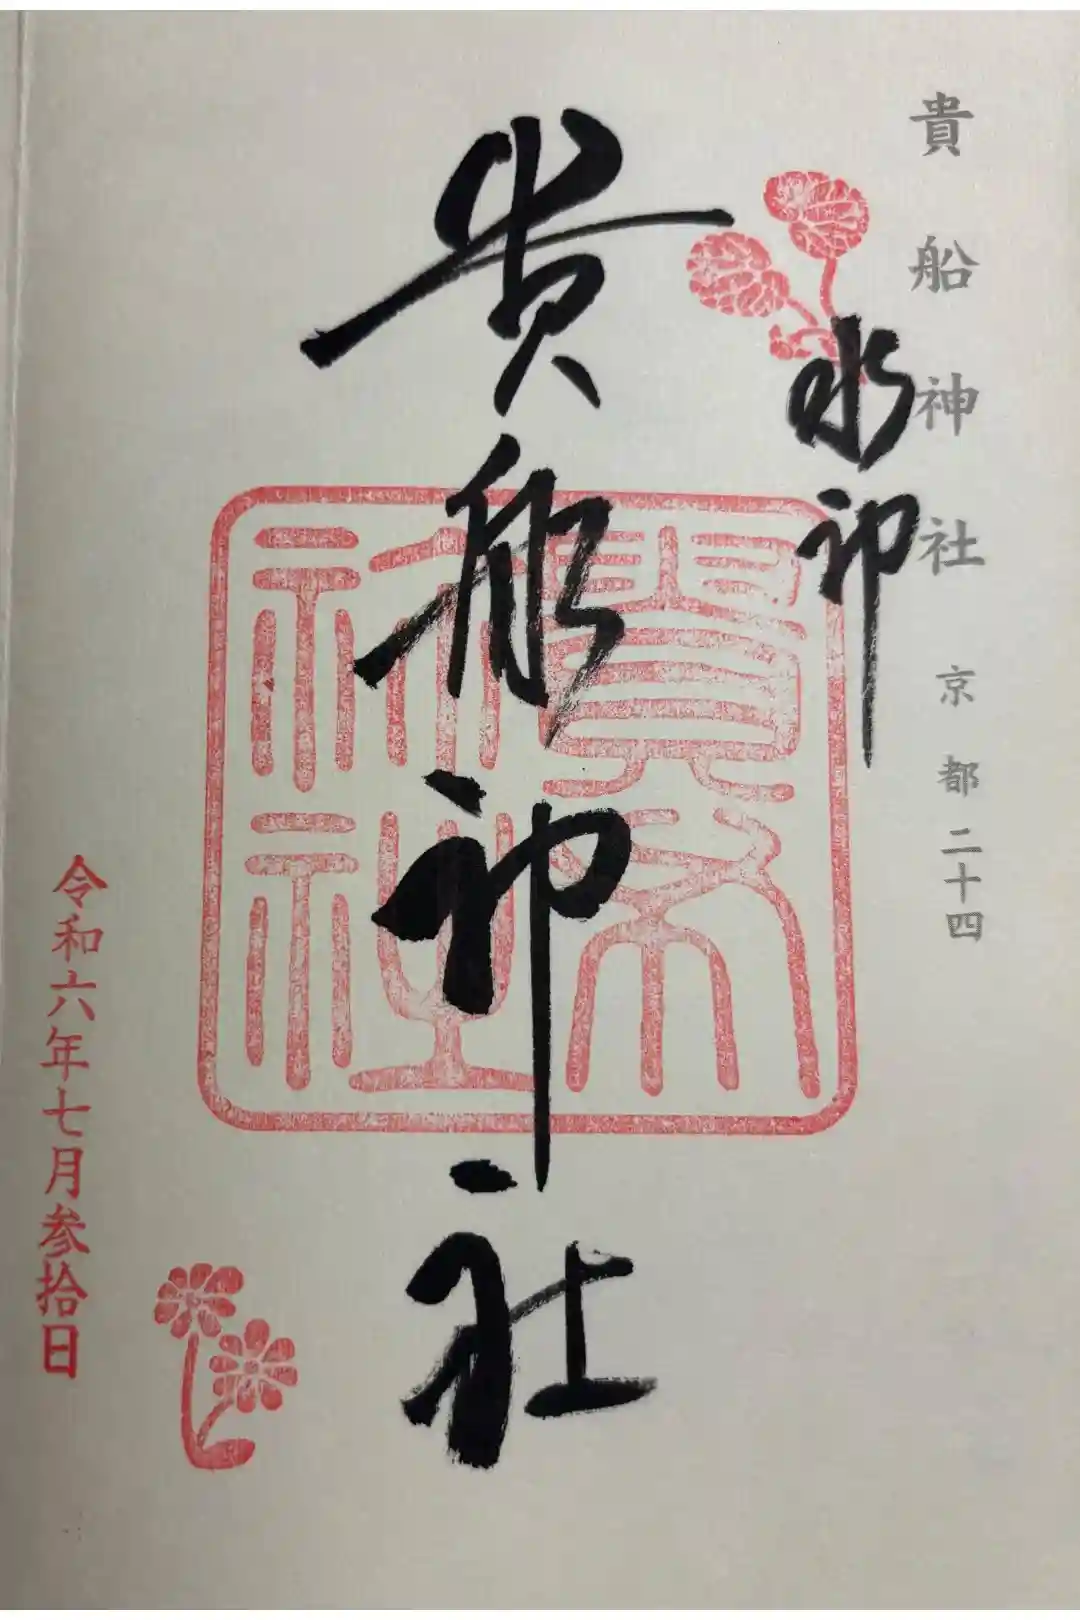 貴船神社 京都二十四
水神
貴船神社
貴布
祢社
令和六年七月参拾日